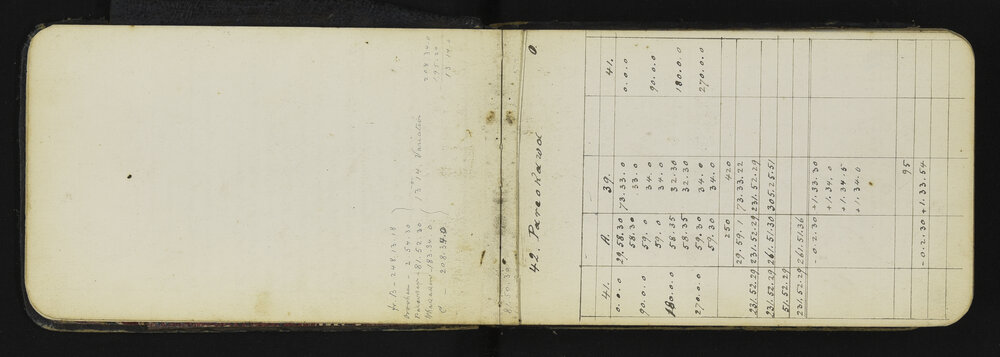 248.13.18
2.54.30
81.52.30
183.34.0 13.14 Variation
C - 208.34.0
208.34.0
195.20
13.14.0
42. Pareokawa 0.
41. A. 39. 41.
0.0.0 29.58.30 73.33.0 0.0.0
58.30 33.0
90.0.0 59.0 34.0 90.0.0
59.0 34.0
180.0.0 58.35 32.30 180.0.0
58.35 32.30
270.0.0 59.30 34.0 270.0.0
59.30 34.0
250 420
29.59.1 73.33.22
231.52.29 231.52.29 231.52.29
231.52.29 261.51.30 305.25.51
51.52.29
231.52.29 261.51.36
-0.2.30 +1.33.30
+1.34.0
+1.34.5
+1.34.0
95
-0.2.30 +1.33.54